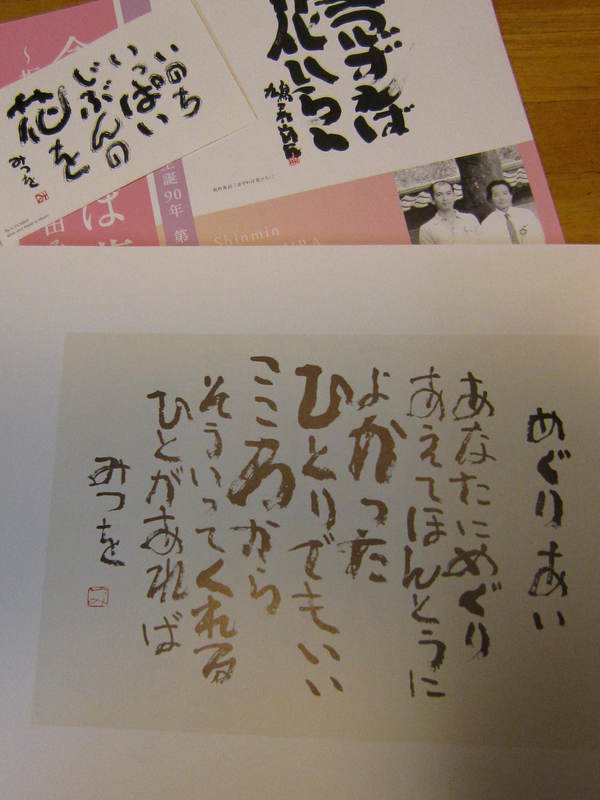 いのち
いっぱい
じぶんの
花を
みつを
ずれば
花ひらく
誕90年 第
Shinmin
めぐりあい
あなたにめぐり
あえてほんとうに
よかった
ひとりでもいい
こころから
そういってくれる
ひとがあれば
みつを